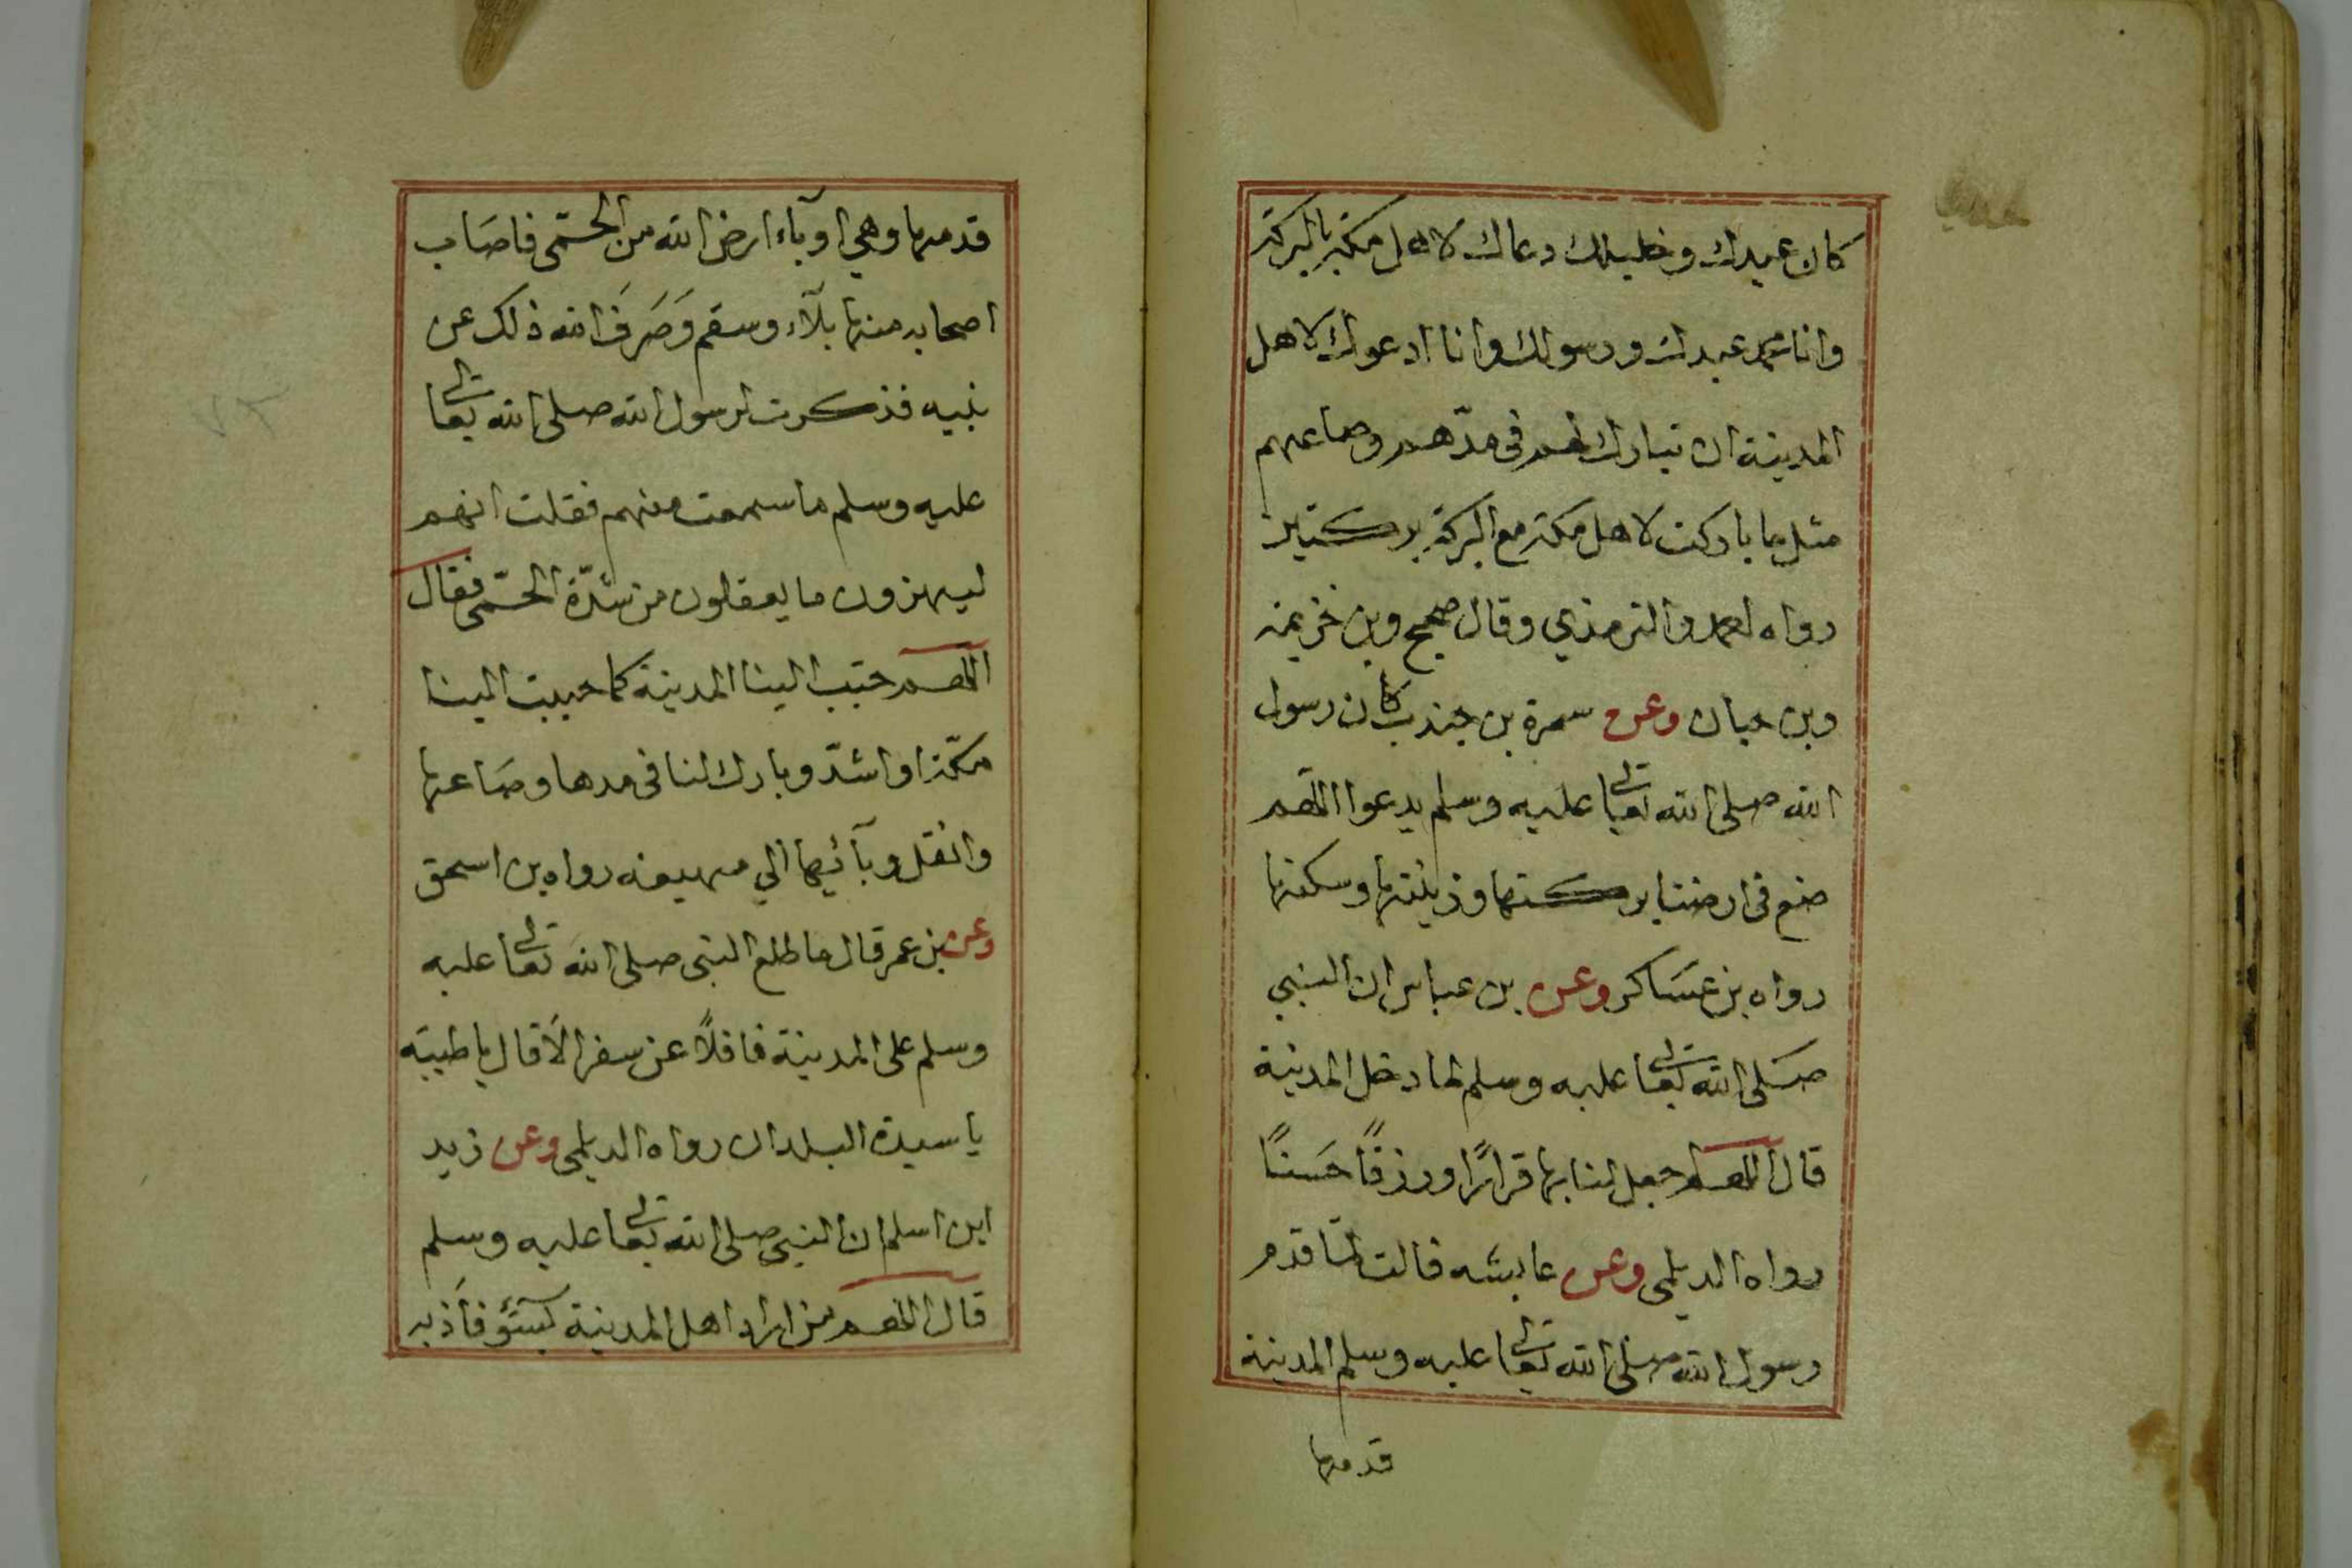 كان عبدك وخليلك دعاك لاهل مكة بالبركة
وانا محمد عبدك ورسولك وانا ادعوك لاهل
المدينة ان تبارك لهم فى مدّهم وصاعهم
مثل ما باركت لاهل مكة مع البركة بركتين
رواه احمد والترمذي وقال صحيح وبن خزيمة
وبن حبان وعن سمرة بن جندب كان رسول
الله صلى الله تعالى عليه وسلم يدعوا اللهم
ضع فى ارضنا بركتها وزينتها وسكنها
رواه بن عَسَاكر وعن بن عباس ان النبي
صَلى الله تعالى عليه وسلم لما دخل المدينة
قال اللهم اجعل لنا بها قرارًا ورزقًا حَسَنًا
رواه الديلمى وعن عايشه قالت لمّا قدم
رسول الله صلى الله تعالى عليه وسلم المدينة
قدمها
قدمها وهي اوبآء ارض الله من الحمّى فاصَاب
اصحابه منها بلآء وسقم وَصَرَفَ الله ذلك عن
نبيه فذكرت لرسول الله صلى الله تعالى
عليه وسلم ما سمعت منهم فقلت انهم
ليهزون ما يعقلون من شدّة الحمّى فقال
اللهم حبّب الينا المدينة كما حببت الينا
مكّة او اشدّ وبارك لنا فى مدها وصَاعها
وانقل وبآئها الي مهيعه رواه بن اسحق
وعن بن عمر قال ما طلع النبى صلى الله تعالى عليه
وسلم على المدينة قافلاً عن سفر الاّ قال يا طيبَه
يا سيدة البلدان رواه الديلمى وعن زيد
ابن اسلم ان النبى صلى الله تعالى عليه وسلم
قال اللهم من اراد اهل المدينة بسَؤ فاَذبه